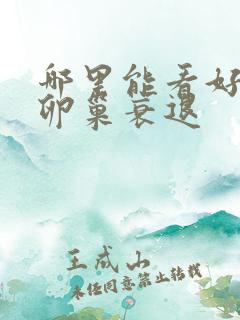 哪里能看好
卵巢衰退
王成山
未经同意禁止转载